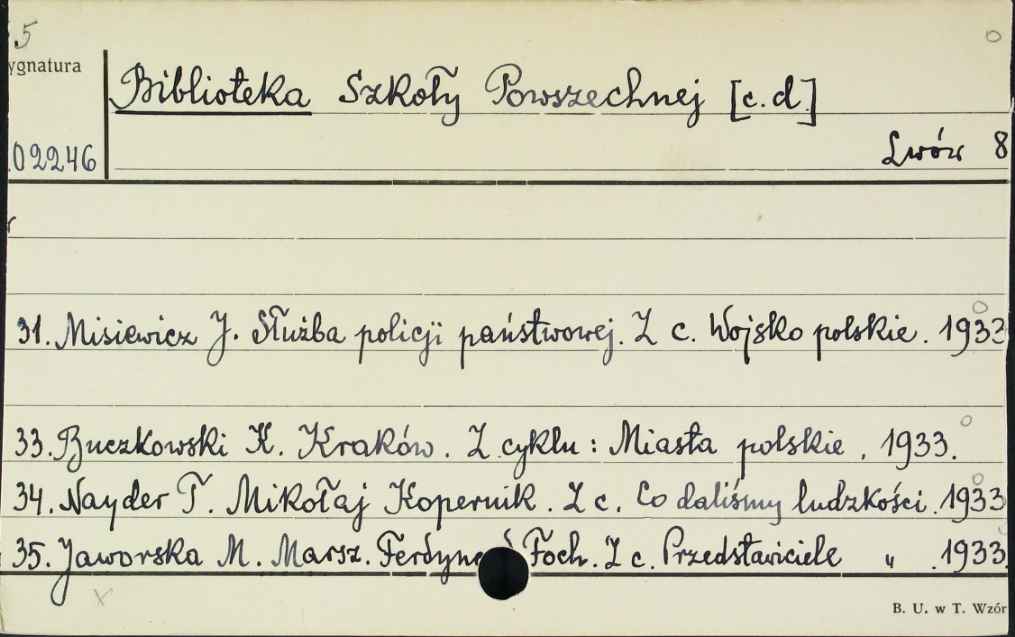 5
ygnatura
Biblioteka Szkoły Powszechnej [c.d.]
02246
Lwów 8
31. Misiewicz J. Służba policji państwowej. Z c. Wojsko polskie. 1933
33. Buczkowski K. Kraków. Z cyklu: Miasta polskie, 1933.
34. Nayder T. Mikołaj Kopernik. Z c. Co daliśmy ludzkości. 1933
35. Jaworska M. Marsz. Ferdynand Foch. Z c. Przedstawiciele " . 1933.
B. U. w T. Wzór